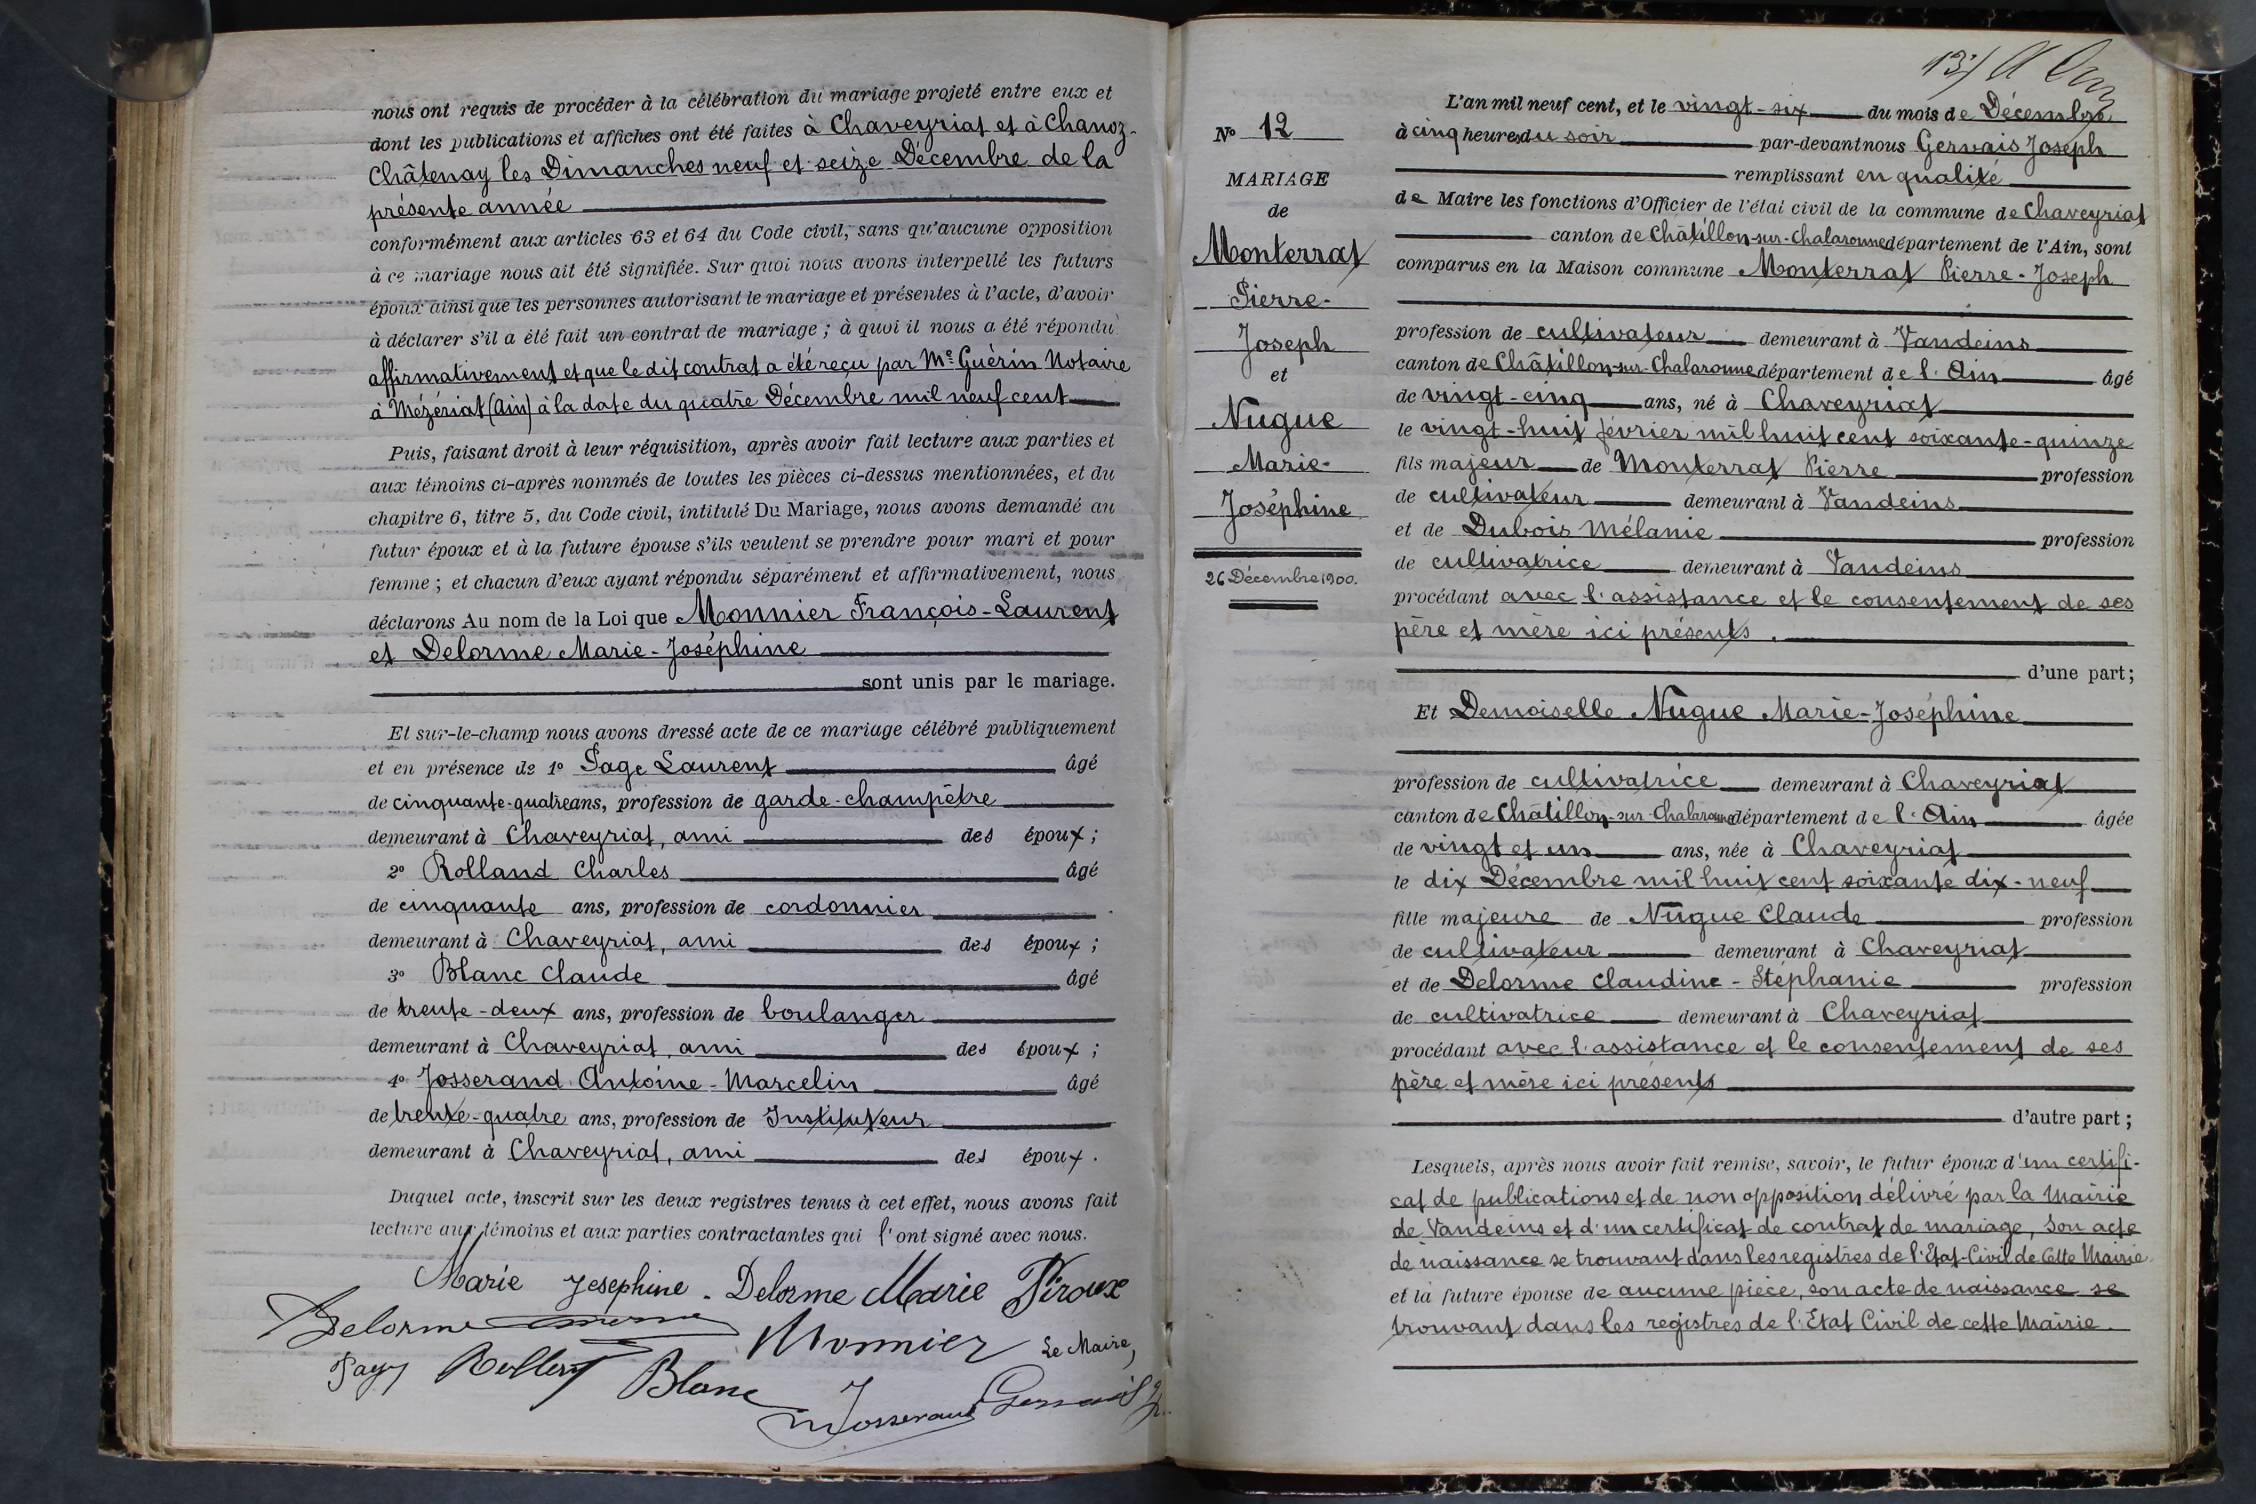 nous ont requis de procéder à la célébration du mariage projeté entre eux et
dont les publications et affiches ont été faites à Chaveyriat et à Chanoz-
Châtenay les Dimanches neuf et seize Décembre de la
présente année
conformément aux articles 63 et 64 du Code civil, sans qu'aucune opposition
à ce mariage nous ait été signifiée. Sur quoi nous avons interpellé les futurs
époux ainsi que les personnes autorisant le mariage et présentes à l'acte, d'avoir
à déclarer s'il a été fait un contrat de mariage ; à quoi il nous a été répondu
affirmativement et que le dit contrat a été reçu par Me Guérin Notaire
à Mézériat (Ain) à la date du quatre Décembre mil neuf cent
Puis, faisant droit à leur réquisition, après avoir fait lecture aux parties et
aux témoins ci-après nommés de toutes les pièces ci-dessus mentionnées, et du
chapitre 6, titre 5, du Code civil, intitulé Du Mariage, nous avons demandé au
futur époux et à la future épouse s'ils veulent se prendre pour mari et pour
femme ; et chacun d'eux ayant répondu séparément et affirmativement, nous
déclarons Au nom de la Loi que Monnier François-Laurent
et Delorme Marie-Joséphine
sont unis par le mariage.
Et sur-le-champ nous avons dressé acte de ce mariage célébré publiquement
et en présence de 1° Page Laurent âgé
de cinquante-quatre ans, profession de garde-champêtre
demeurant à Chaveyriat, ami des époux ;
2° Rolland Charles âgé
de cinquante ans, profession de cordonnier
demeurant à Chaveyriat, ami des époux ;
3° Blanc Claude âgé
de trente-deux ans, profession de boulanger
demeurant à Chaveyriat, ami des époux ;
4° Josserand Antoine-Marcelin âgé
de trente-quatre ans, profession de Instituteur
demeurant à Chaveyriat, ami des époux.
Duquel acte, inscrit sur les deux registres tenus à cet effet, nous avons fait
lecture aux témoins et aux parties contractantes qui l'ont signé avec nous.
Marie Josephine Delorme Marie Piroux
Delorme Monnier Le Maire,
Page Blanc
Josserand Gervais
N° 12
MARIAGE
de
Monterrat
Pierre-
Joseph
et
Nugue
Marie-
Joséphine
26 Décembre 1900.
L'an mil neuf cent, et le vingt-six du mois de Décembre
à cinq heures du soir par-devant nous Gervais Joseph
remplissant en qualité
de Maire les fonctions d'Officier de l'état civil de la commune de Chaveyriat
canton de Châtillon-sur-Chalaronne département de l'Ain, sont
comparus en la Maison commune Monterrat Pierre-Joseph
profession de cultivateur demeurant à Vandeins
canton de Châtillon-sur-Chalaronne département de l'Ain âgé
de vingt-cinq ans, né à Chaveyriat
le vingt-huit février mil huit cent soixante-quinze
fils majeur de Monterrat Pierre profession
de cultivateur demeurant à Vandeins
et de Dubois Mélanie profession
de cultivatrice demeurant à Vandeins
procédant avec l'assistance et le consentement de ses
père et mère ici présents.
d'une part ;
Et Demoiselle Nugue Marie-Joséphine
profession de cultivatrice demeurant à Chaveyriat
canton de Châtillon-sur-Chalaronne département de l'Ain âgée
de vingt et un ans, née à Chaveyriat
le dix Décembre mil huit cent soixante dix-neuf
fille majeure de Nugue Claude profession
de cultivateur demeurant à Chaveyriat
et de Delorme Claudine-Stéphanie profession
de cultivatrice demeurant à Chaveyriat
procédant avec l'assistance et le consentement de ses
père et mère ici présents
d'autre part ;
Lesquels, après nous avoir fait remise, savoir, le futur époux d'un certifi-
cat de publications et de non opposition délivré par la Mairie
de Vandeins et d'un certificat de contrat de mariage, son acte
de naissance se trouvant dans les registres de l'Etat-Civil de Cette Mairie
et la future épouse de aucune pièce, son acte de naissance se
trouvant dans les registres de l'Etat Civil de cette Mairie.